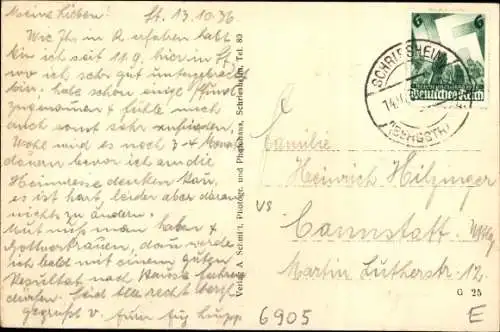 Meine Lieben! St. 13.10.36
Wie Ihr in K. erfahren habt
bin ich seit 11.9. hier in St.
wo ich sehr gut untergebracht
bin, habe schon einige Pfund
zugenommen & fühle mich
auch sonst sehr zufrieden.
Wohl wird es noch 3-4 Monate
dauern bevor ich an die
Heimreise denken kann,
es ist hart, leider aber daran
nichts zu ändern.
Mut muß man haben &
Gottvertrauen, dann werde
ich bald mit einem guten
Resultat nach Hause kehren
dürfen. Seid alle recht herzl.
gegrüßt v.
Verlag A. Schmitt, Photogr. und Photohaus, Schriesheim, Tel. 83
6
6
Deutsches Reich
SCHRIESHEIM
(BERGSTR)
Familie
Heinrich Hilzinger
VS
Cannstatt
Martin Lutherstr. 12.
G 25
6905
E